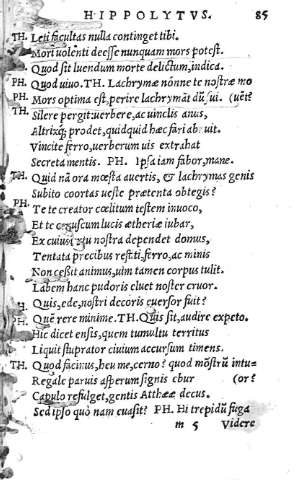 HIPPOLYTUS. 85
TH. Leti facultas nulla continget tibi.
Mori uolenti deesse nunquam mors potest.
Quod sit luendum morte delictum, indica.
PH. Quod uiuo. TH. Lachrymæ nónne te nostræ mo
PH. Mors optima est, perire lachrymãdũ (uẽt?
TH. Silere pergit: uerbere, ac uinclis anus,
Altrixq; prodet, quidquid hæc fari
Vincite ferro, uerberum uis extrahat
Secreta mentis. PH. Ipsa iam fabor, mane.
TH. Quid nã ora mœsta auertis, & lachrymas genis
Subito coortas ueste prætenta obtegis?
PH. Te te creator cœlitum testem inuoco,
Et te coruscum lucis ætheriæ iubar,
Ex cuius ortu nostra dependet domus,
Tentata precibus restiti, ferro, ac minis
Non cessit animus, uim tamen corpus tulit.
Labem hanc pudoris eluet noster cruor.
Quis, ede, nostri decoris euersor fuit?
PH. Quẽ rere minime. TH. Quis sit, audire expeto.
Hic dicet ensis, quem tumultu territus
Liquit stuprator ciuium accursum timens.
TH. Quod facinus, heu me, cerno? quod mõstrũ intu=
Regale paruis asperum signis ebur (or?
Capulo refulget, gentis Atthææ decus.
Sed ipso quò nam euasit? PH. Hi trepidũ fuga
m 5 Videre